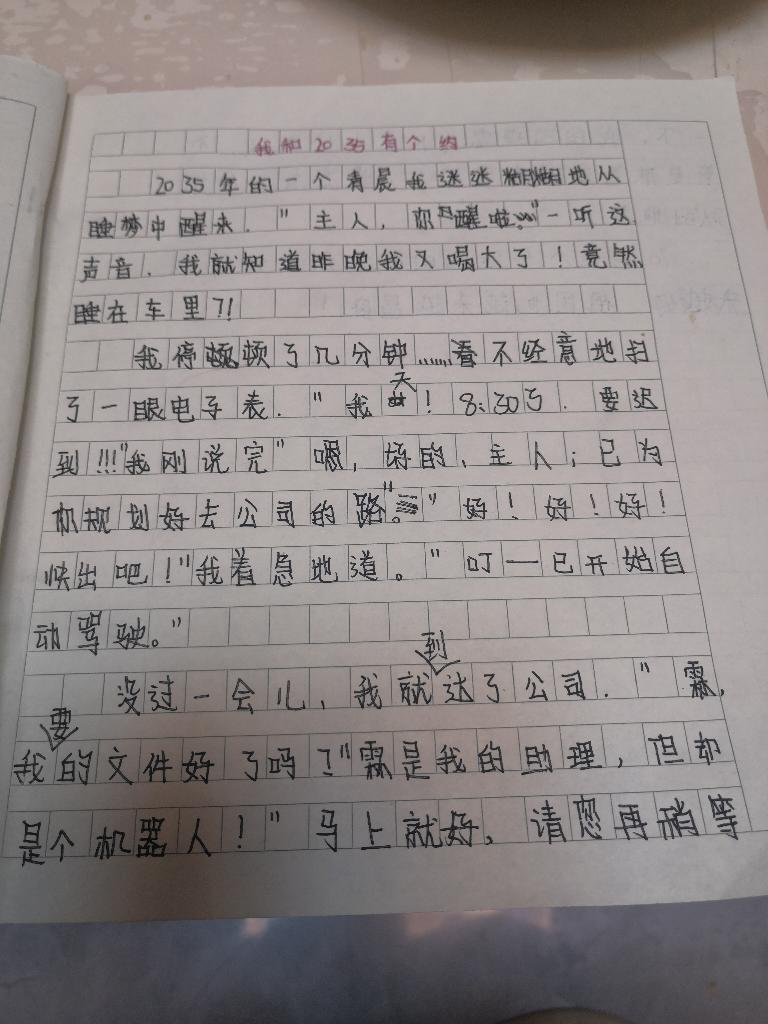 我和2035有个约
2035年的一个清晨我迷迷糊糊地从
睡梦中醒来．"主人，你醒啦"一听这
声音．我就知道昨晚我又喝大了！竟然
睡在车里？！
我停顿顿了几分钟……看不经意地扫
了一眼电子表．"我天！8:30了．要迟
到!!!"我刚说完"嗯，的，主人；已为
你规划好去公司的路。"" 好！好！好！
快出吧！"我着急地道。"叮一已开始自
动驾驶。"
没过一会儿，我就到达了公司．"霖，
我要的文件好了吗？"霖是我的助理，但却
是个机器人！"马上就好，请您再稍等